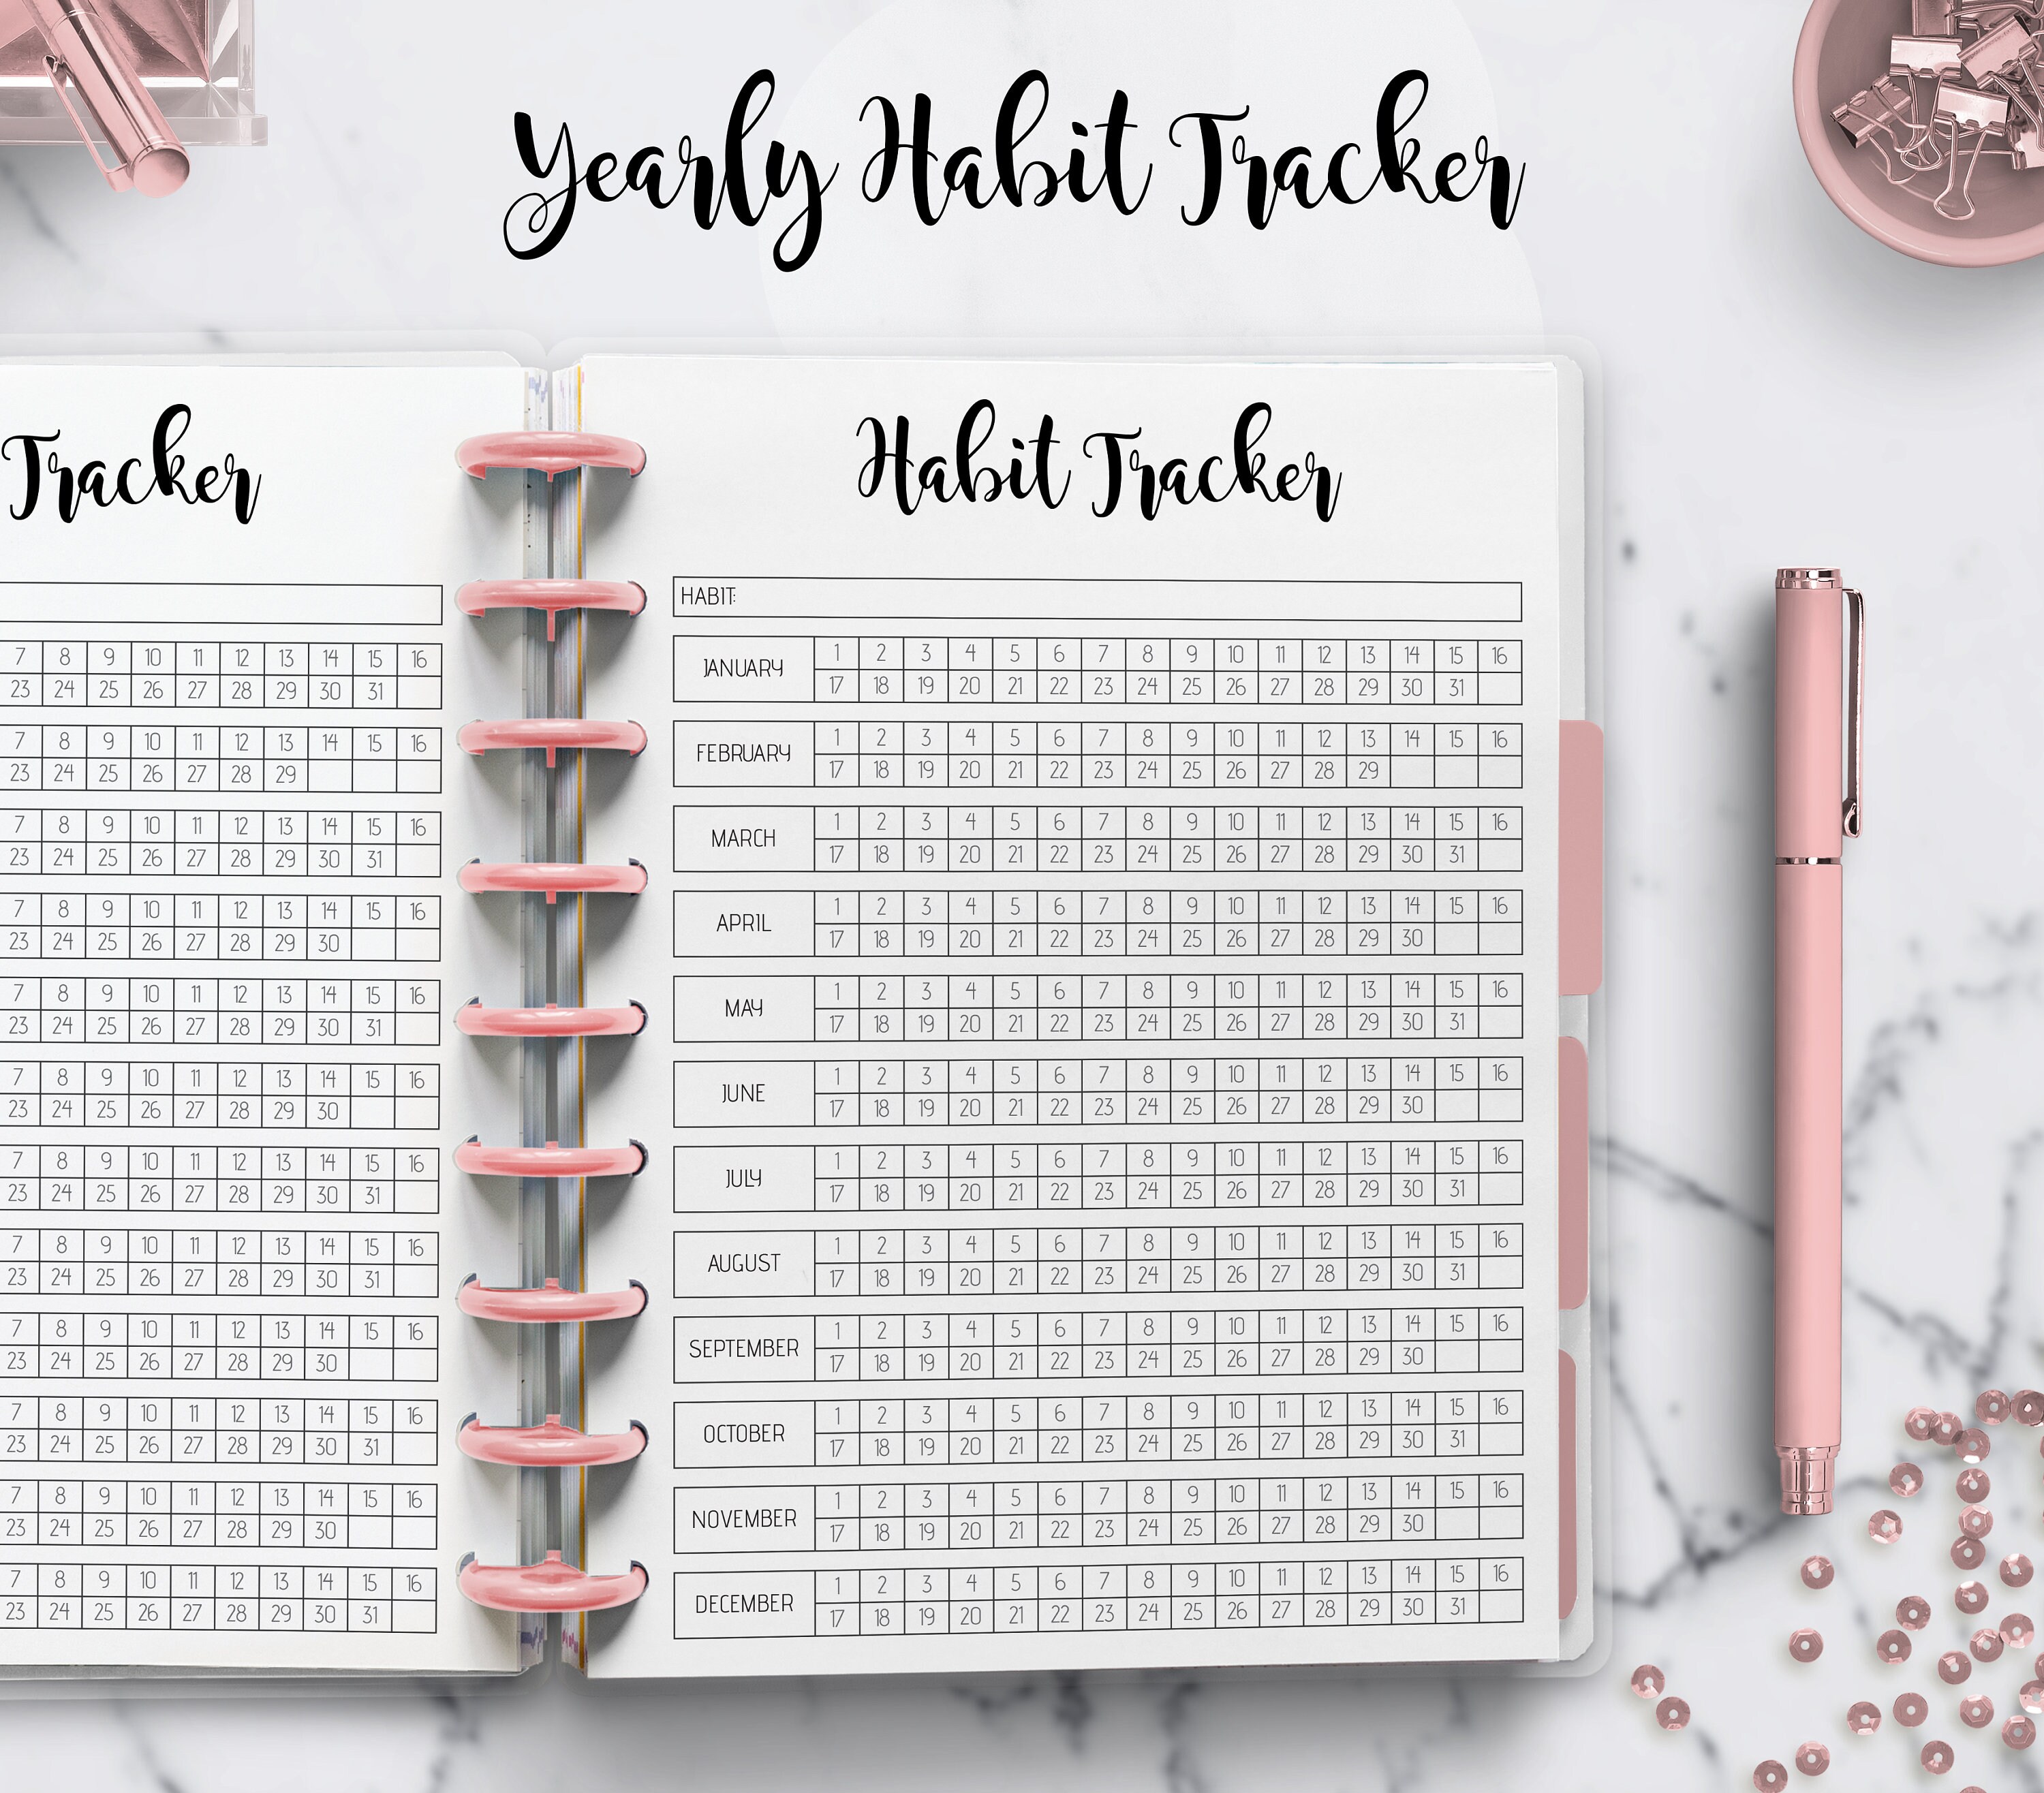 Yearly Habit Tracker
Tracker
7 8 9 10 11 12 13 14 15 16
23 24 25 26 27 28 29 30 31
7 8 9 10 11 12 13 14 15 16
23 24 25 26 27 28 29
7 8 9 10 11 12 13 14 15 16
23 24 25 26 27 28 29 30 31
7 8 9 10 11 12 13 14 15 16
23 24 25 26 27 28 29 30
7 8 9 10 11 12 13 14 15 16
23 24 25 26 27 28 29 30 31
7 8 9 10 11 12 13 14 15 16
23 24 25 26 27 28 29 30
7 8 9 10 11 12 13 14 15 16
23 24 25 26 27 28 29 30 31
7 8 9 10 11 12 13 14 15 16
23 24 25 26 27 28 29 30 31
7 8 9 10 11 12 13 14 15 16
23 24 25 26 27 28 29 30
7 8 9 10 11 12 13 14 15 16
23 24 25 26 27 28 29 30 31
7 8 9 10 11 12 13 14 15 16
23 24 25 26 27 28 29 30
7 8 9 10 11 12 13 14 15 16
23 24 25 26 27 28 29 30 31
Habit Tracker
HABIT:
JANUARY
1 2 3 4 5 6 7 8 9 10 11 12 13 14 15 16
17 18 19 20 21 22 23 24 25 26 27 28 29 30 31
FEBRUARY
1 2 3 4 5 6 7 8 9 10 11 12 13 14 15 16
17 18 19 20 21 22 23 24 25 26 27 28 29
MARCH
1 2 3 4 5 6 7 8 9 10 11 12 13 14 15 16
17 18 19 20 21 22 23 24 25 26 27 28 29 30 31
APRIL
1 2 3 4 5 6 7 8 9 10 11 12 13 14 15 16
17 18 19 20 21 22 23 24 25 26 27 28 29 30
MAY
1 2 3 4 5 6 7 8 9 10 11 12 13 14 15 16
17 18 19 20 21 22 23 24 25 26 27 28 29 30 31
JUNE
1 2 3 4 5 6 7 8 9 10 11 12 13 14 15 16
17 18 19 20 21 22 23 24 25 26 27 28 29 30
JULY
1 2 3 4 5 6 7 8 9 10 11 12 13 14 15 16
17 18 19 20 21 22 23 24 25 26 27 28 29 30 31
AUGUST
1 2 3 4 5 6 7 8 9 10 11 12 13 14 15 16
17 18 19 20 21 22 23 24 25 26 27 28 29 30 31
SEPTEMBER
1 2 3 4 5 6 7 8 9 10 11 12 13 14 15 16
17 18 19 20 21 22 23 24 25 26 27 28 29 30
OCTOBER
1 2 3 4 5 6 7 8 9 10 11 12 13 14 15 16
17 18 19 20 21 22 23 24 25 26 27 28 29 30 31
NOVEMBER
1 2 3 4 5 6 7 8 9 10 11 12 13 14 15 16
17 18 19 20 21 22 23 24 25 26 27 28 29 30
DECEMBER
1 2 3 4 5 6 7 8 9 10 11 12 13 14 15 16
17 18 19 20 21 22 23 24 25 26 27 28 29 30 31